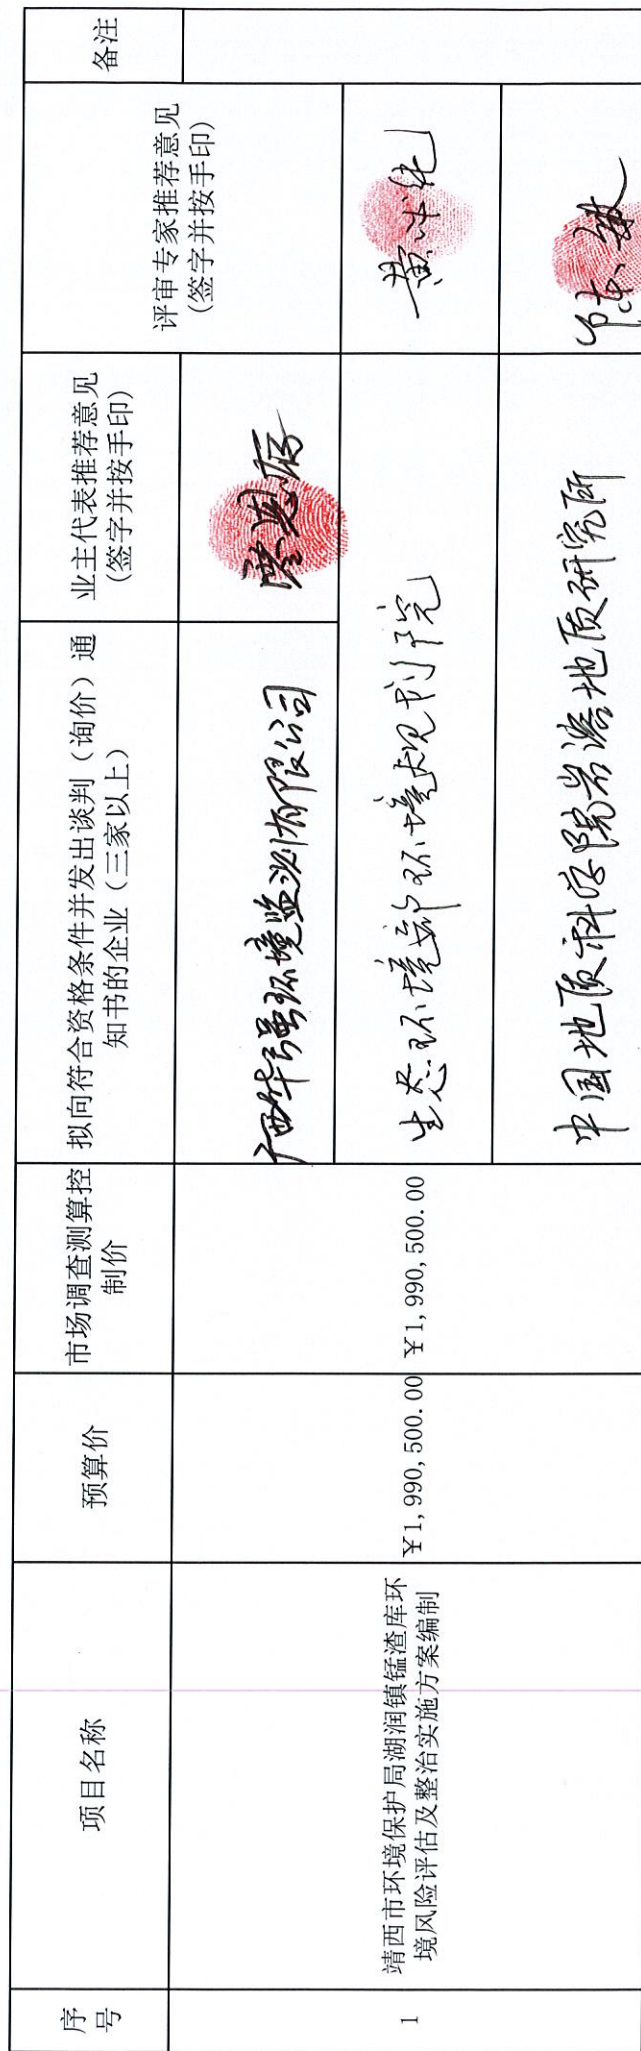 序
号
项目名称
预算价
市场调查测算控
制价
拟向符合资格条件并发出谈判（询价）通
知书的企业（三家以上）
业主代表推荐意见
(签字并按手印)
评审专家推荐意见
(签字并按手印)
备注
1
靖西市环境保护局湖润镇锰渣库环
境风险评估及整治实施方案编制
¥1,990,500.00
¥1,990,500.00
广西华强环境监测有限公司
生态环境部环境规划院
中国地质科学院岩溶地质研究所